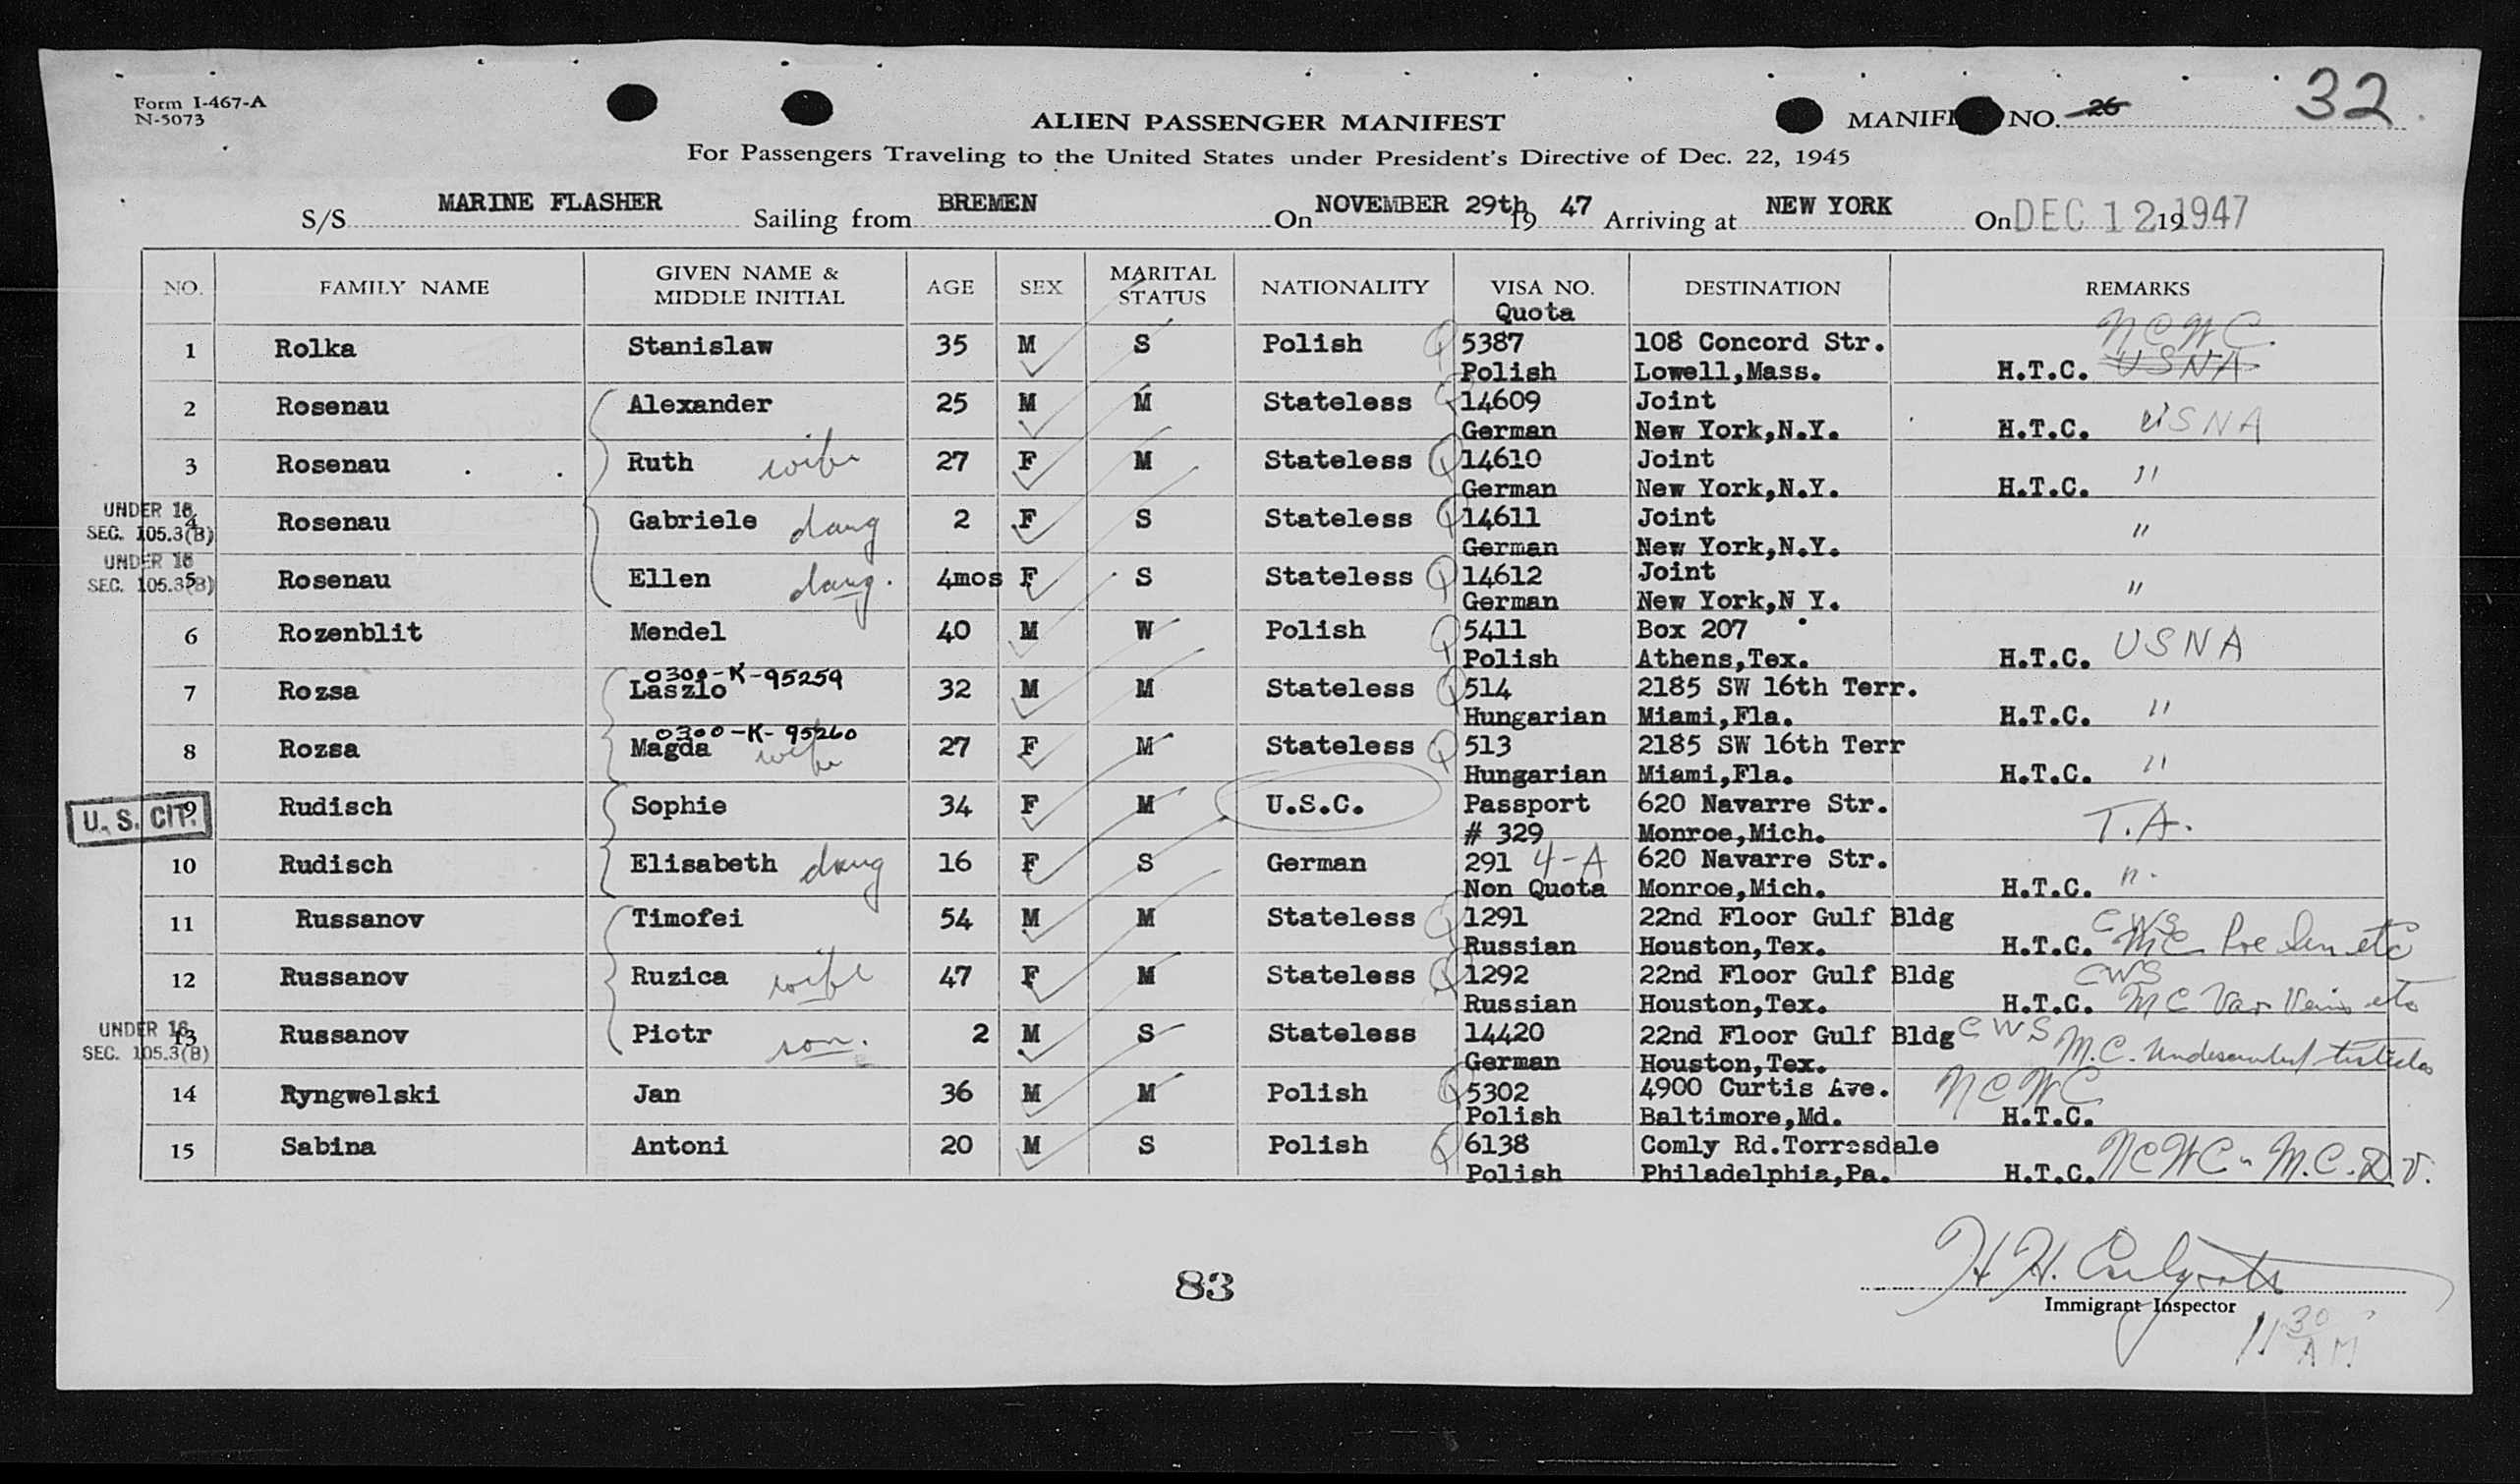 Form I-467-A
N-5073
32
ALIEN PASSENGER MANIFEST
MANIFE NO. 26
For Passengers Traveling to the United States under President's Directive of Dec. 22, 1945
S/S MARINE FLASHER Sailing from BREMEN On NOVEMBER 29th 19 47 Arriving at NEW YORK On DEC 12 19 1947
NO. FAMILY NAME GIVEN NAME & MIDDLE INITIAL AGE SEX MARITAL STATUS NATIONALITY VISA NO. DESTINATION REMARKS
Quota
NCWC
1 Rolka Stanislaw 35 M S Polish Q 5387 108 Concord Str.
Polish Lowell,Mass. H.T.C. USNA
2 Rosenau Alexander 25 M M Stateless Q 14609 Joint
German New York,N.Y. H.T.C. USNA
3 Rosenau Ruth wife 27 F M Stateless Q 14610 Joint
German New York,N.Y. H.T.C. "
UNDER 16
SEC. 105.3(B)
4 Rosenau Gabriele daug 2 F S Stateless Q 14611 Joint
German New York,N.Y. "
UNDER 16
SEC. 105.3(B)
5 Rosenau Ellen daug. 4mos F S Stateless Q 14612 Joint
German New York,N Y. "
6 Rozenblit Mendel 40 M W Polish Q 5411 Box 207
Polish Athens,Tex. H.T.C. USNA
0300-K-95259
7 Rozsa Laszlo 32 M M Stateless Q 514 2185 SW 16th Terr.
Hungarian Miami,Fla. H.T.C. "
0300-K-95260
8 Rozsa Magda wife 27 F M Stateless Q 513 2185 SW 16th Terr
Hungarian Miami,Fla. H.T.C. "
U. S. CIT.
9 Rudisch Sophie 34 F M U.S.C. Passport 620 Navarre Str.
# 329 Monroe,Mich. T.A.
10 Rudisch Elisabeth daug 16 F S German 291 4-A 620 Navarre Str.
Non Quota Monroe,Mich. H.T.C. "
11 Russanov Timofei 54 M M Stateless Q 1291 22nd Floor Gulf Bldg CWS
Russian Houston,Tex. H.T.C. MC etc
12 Russanov Ruzica wife 47 F M Stateless Q 1292 22nd Floor Gulf Bldg CWS
Russian Houston,Tex. H.T.C. MC Var Veins etc
UNDER 16
SEC. 105.3(B)
13 Russanov Piotr son. 2 M S Stateless 14420 22nd Floor Gulf Bldg CWS
German Houston,Tex. M.C. Undescended testicles
14 Ryngwelski Jan 36 M M Polish Q 5302 4900 Curtis Ave. NCWC
Polish Baltimore,Md. H.T.C.
15 Sabina Antoni 20 M S Polish Q 6138 Comly Rd.Torresdale
Polish Philadelphia,Pa. H.T.C. NCWC - M.C. D.V.
83
H H.
Immigrant Inspector
11 30 AM